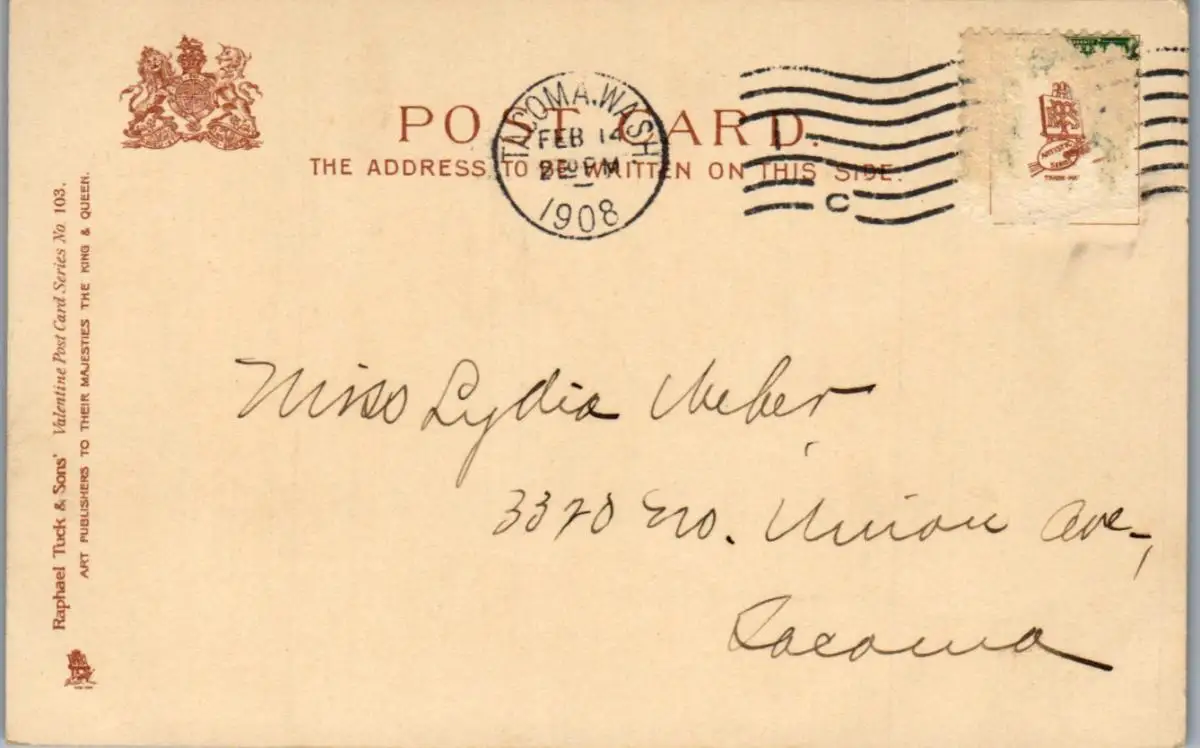 POST CARD.
THE ADDRESS TO BE WRITTEN ON THIS SIDE.
TACOMA, WASH
FEB 14
PM
1908
C
ARTISTIC
SERIES
Miss Lydia Weber
3320 No. Union Ave.,
Tacoma
Raphael Tuck & Sons' Valentine Post Card Series No. 103.
ART PUBLISHERS TO THEIR MAJESTIES THE KING & QUEEN.